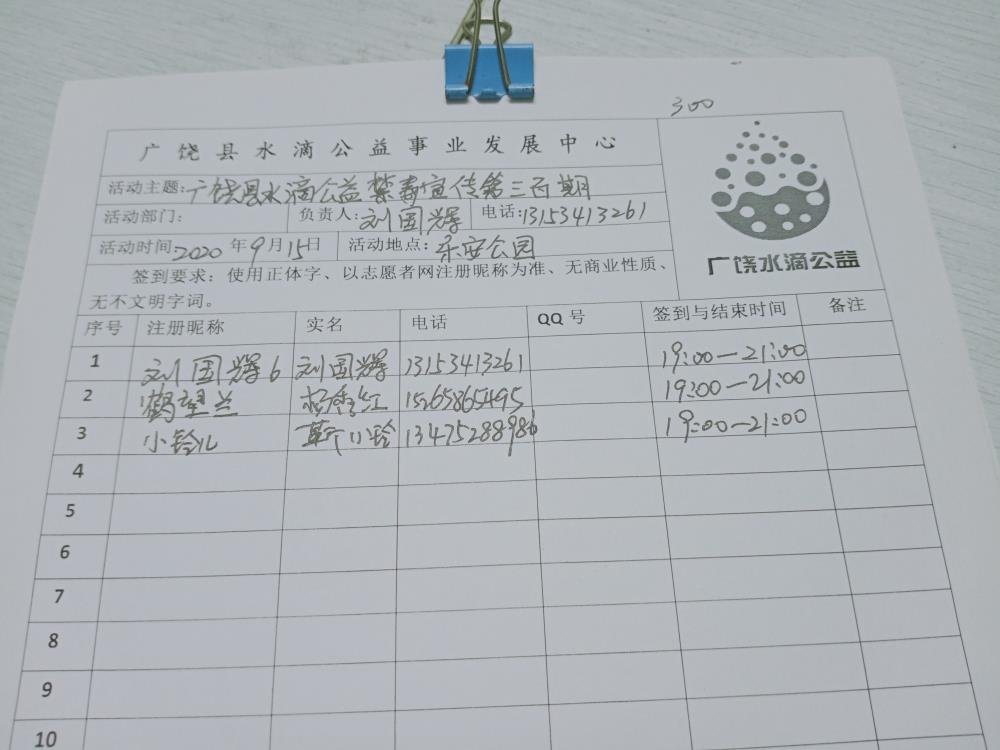 300
广饶县水滴公益事业发展中心
活动主题:广饶县水滴公益禁毒宣传第三百期
活动部门: 负责人:刘国辉 电话:13153413261
活动时间:2020年9月15日 活动地点:乐安公园
签到要求：使用正体字、以志愿者网注册昵称为准、无商业性质、
无不文明字词。
广饶水滴公益
序号 注册昵称 实名 电话 QQ号 签到与结束时间 备注
1 刘国辉6 刘国辉 13153413261 19:00—21:00
2 鹤望兰 杨秀红 15265865495 19:00—21:00
3 小铃儿 小铃 13475288986 19:00—21:00
4
5
6
7
8
9
10